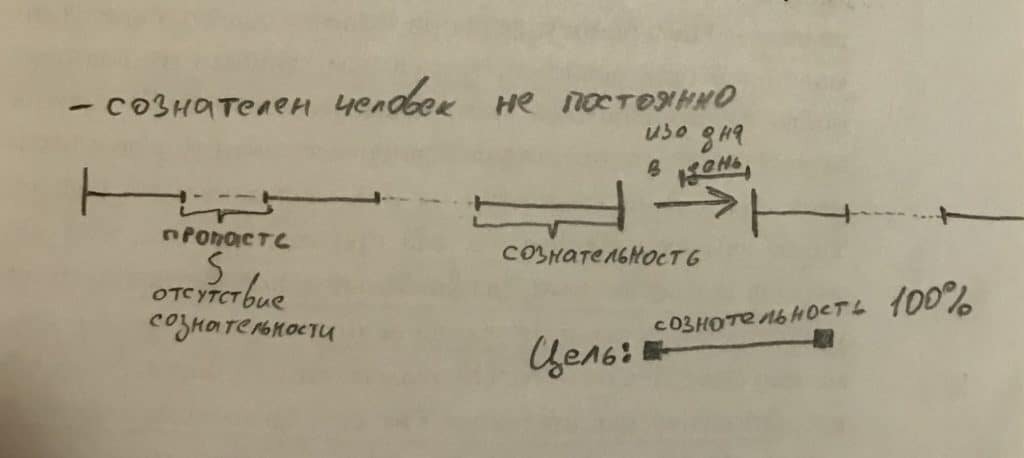 - сознателен человек не постоянно
изо дня
в день
пропасть
сознательность
отсутствие
сознательности
сознотельность 100%
Цель: